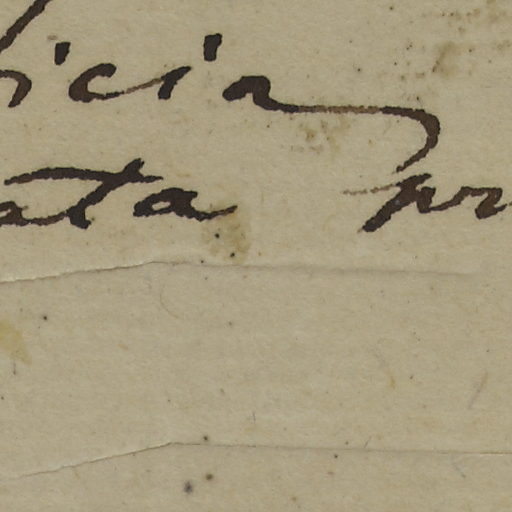 icia
ata pr